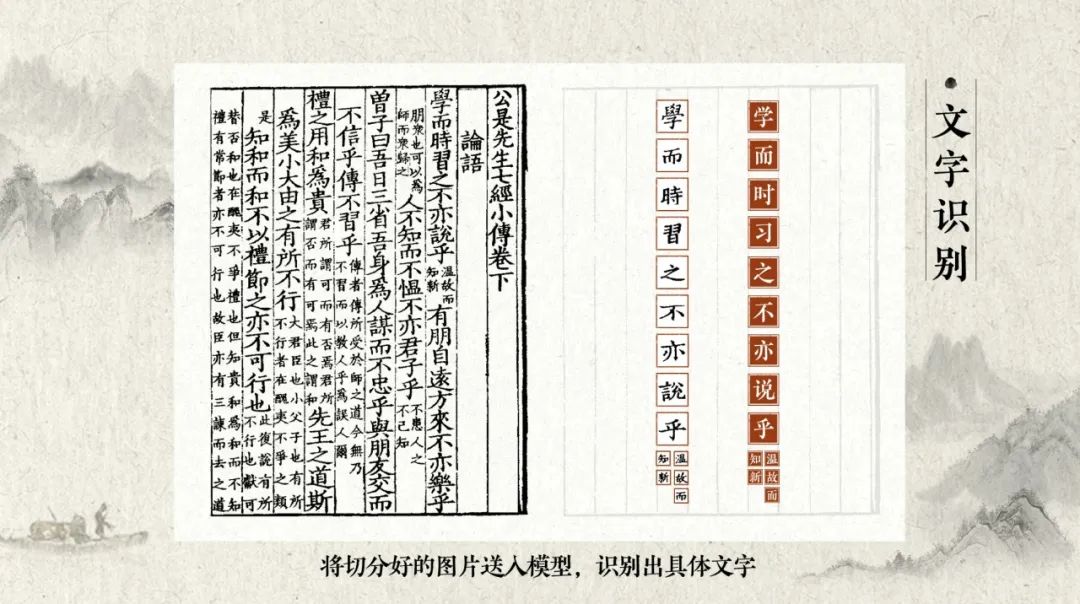 文字识别
学而时习之不亦说乎温故而知新
學而時習之不亦說乎溫故而知新
公是先生七經小傳卷下
論語
學而時習之不亦說乎溫故而知新有朋自遠方來不亦樂乎
朋衆也可以為師而衆歸之人不知而不慍不亦君子乎不患人之不己知
曾子曰吾日三省吾身為人謀而不忠乎與朋友交而
不信乎傳不習乎傳者傳所受於師之道今無乃不習而以教人乎為誤人爾
禮之用和為貴君所謂可而有否焉君所謂否而有可焉此之謂和先王之道斯
為美小大由之有所不行大君臣也小父子也有所不行者在醜夷不爭之類
是知和而和不以禮節之亦不可行也此復說有所不行也獻可
替否和也在醜夷不爭禮也但知貴和為和而不知
禮有常節者亦不可行也故臣亦有三諫而去之道
将切分好的图片送入模型，识别出具体文字